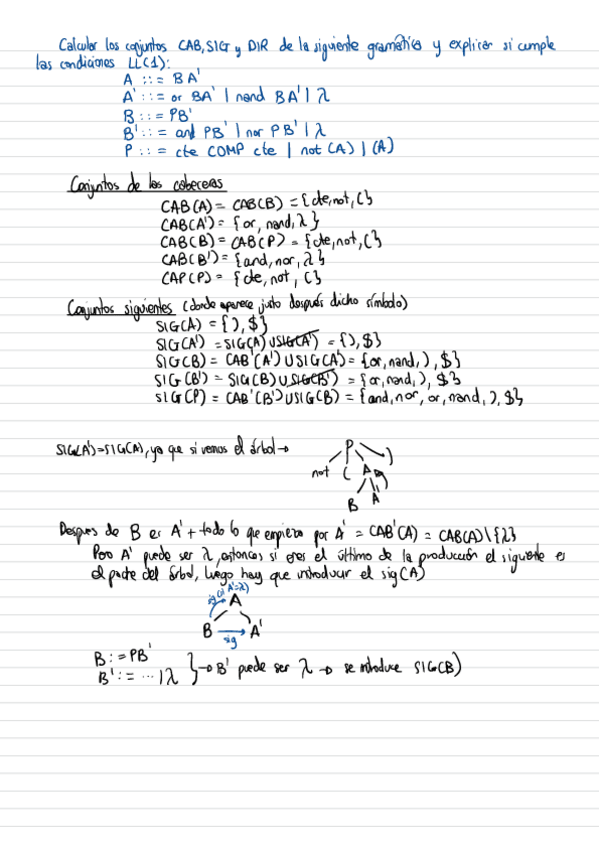 Calcular los conjuntos CAB, SIG y DIR de la siguiente gramática y explicar si cumple
las condiciones LL(1):
A ::= BA'
A' ::= or BA' | nand BA' | λ
B ::= PB'
B' ::= and PB' | nor PB' | λ
P ::= cte COMP cte | not (A) | (A)
Conjuntos de las cabeceras
CAB(A) = CAB(B) = {cte, not, (}
CAB(A') = {or, nand, λ}
CAB(B) = CAB(P) = {cte, not, (}
CAB(B') = {and, nor, λ}
CAP(P) = {cte, not, (}
Conjuntos siguientes (donde aparece justo después dicho símbolo)
SIG(A) = {), $}
SIG(A') = SIG(A) U SIG(A') = {), $}
SIG(B) = CAB'(A') U SIG(A) = {or, nand, ), $}
SIG(B') = SIG(B) U SIG(B') = {or, nand, ), $}
SIG(P) = CAB'(B') U SIG(B) = {and, nor, or, nand, ), $}
SIG(A') = SIG(A), ya que si vemos el árbol →
P
not ( A )
B A'
Despues de B es A' + todo lo que empieza por A' = CAB'(A) = CAB(A) \ {λ}
Pero A' puede ser λ, entonces si eres el último de la producción el siguiente es
el padre del árbol, luego hay que introducir el sig(A)
sig (si A'=λ)
A
B sig A'
B := PB'
B' := ... | λ } → B' puede ser λ → se introduce SIG(B)